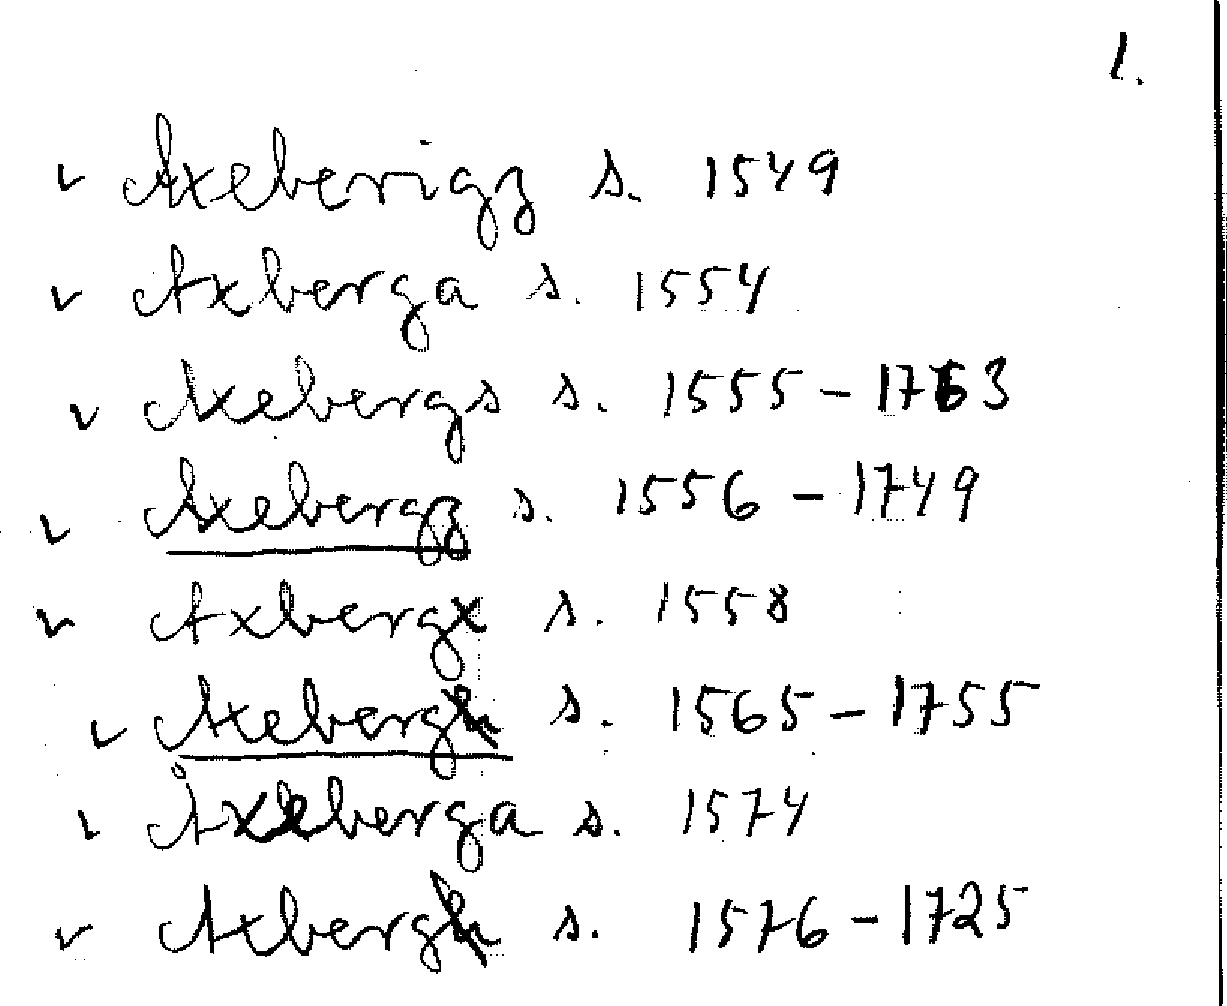 1.
v Axeberigz s. 1549
v Axberga s. 1554
v Axebergs s. 1555 - 1763
v Axebergz s. 1556 - 1749
v Axbergx s. 1558
v Axeberg s. 1565 - 1755
v Åxeberga s. 1574
v Axberg s. 1576 - 1725